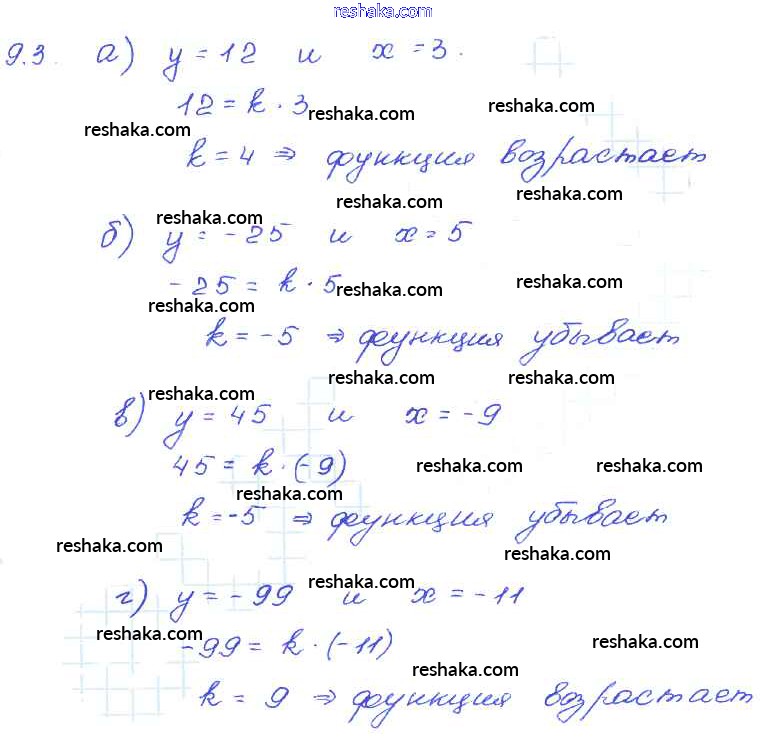 reshaka.com
9.3. а) y = 12 и x = 3.
12 = k · 3
reshaka.com reshaka.com reshaka.com
k = 4 ⇒ функция возрастает
reshaka.com reshaka.com reshaka.com
б) y = -25 и x = 5
-25 = k · 5
reshaka.com reshaka.com reshaka.com
k = -5 ⇒ функция убывает
reshaka.com reshaka.com reshaka.com
в) y = 45 и x = -9
45 = k · (-9)
reshaka.com reshaka.com reshaka.com
k = -5 ⇒ функция убывает
reshaka.com reshaka.com reshaka.com
г) y = -99 и x = -11
reshaka.com reshaka.com
-99 = k · (-11)
reshaka.com
k = 9 ⇒ функция возрастает